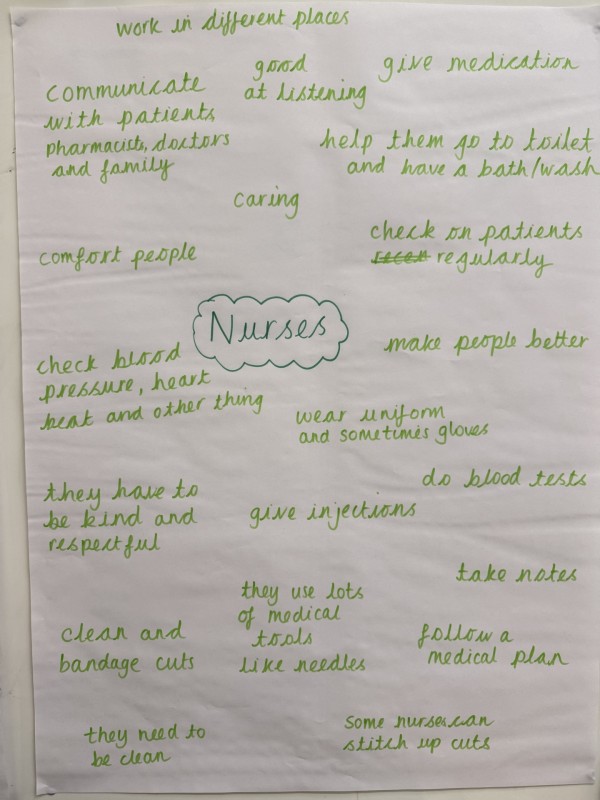 work in different places
good
at listening
give medication
communicate
with patients
pharmacists, doctors
and family
help them go to toilet
and have a bath/wash
caring
check on patients
regularly
comfort people
Nurses
make people better
check blood
pressure, heart
beat and other thing
wear uniform
and sometimes gloves
do blood tests
they have to
be kind and
respectful
give injections
take notes
they use lots
of medical
tools
like needles
clean and
bandage cuts
follow a
medical plan
they need to
be clean
some nurses can
stitch up cuts